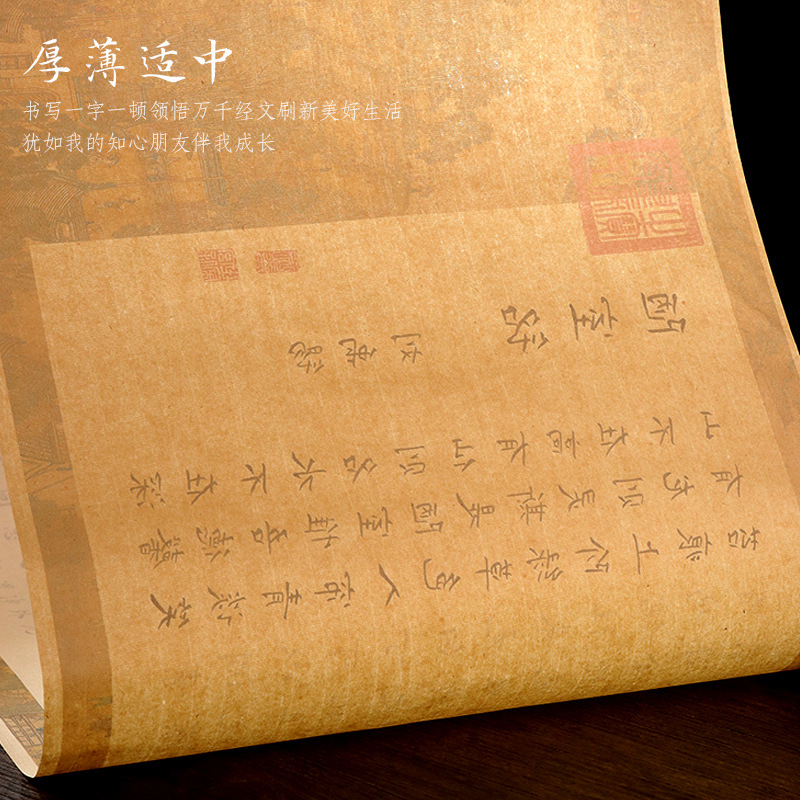 厚薄适中
书写一字一顿领悟万千经文刷新美好生活
犹如我的知心朋友伴我成长
陋室铭
刘禹锡
山不在高有仙则名水不在深
有龙则灵斯是陋室惟吾德馨
苔痕上阶绿草色入帘青谈笑